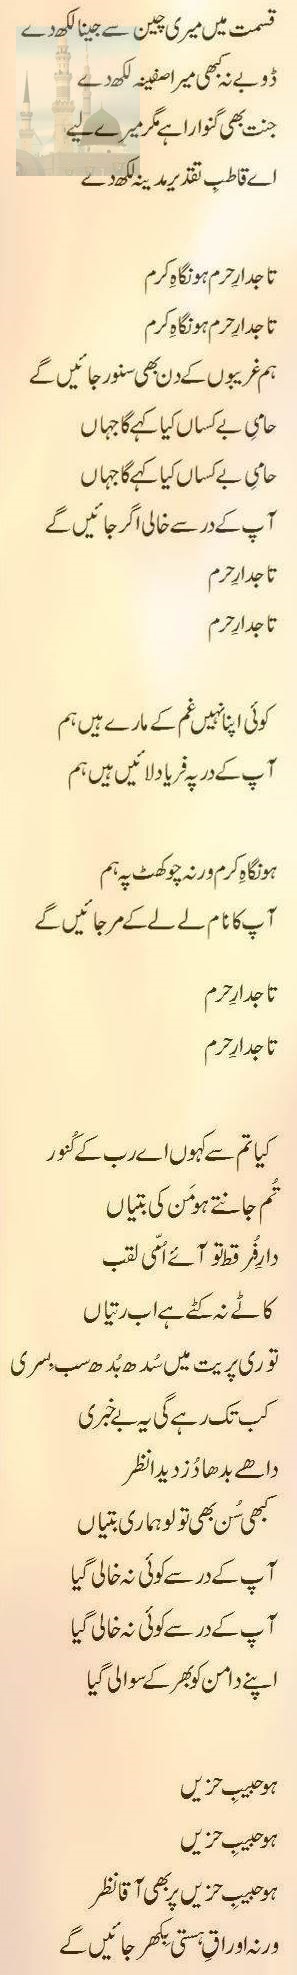 قسمت میں میری چین سے جینا لکھ دے
ڈوبے نہ کبھی میرا صفینہ لکھ دے
جنت بھی گنوارا ہے مگر میرے لیے
اے قاطبِ تقدیر مدینہ لکھ دے
تاجدارِ حرم ہو نگاہِ کرم
تاجدارِ حرم ہو نگاہِ کرم
ہم غریبوں کے دن بھی سنور جائیں گے
حامیِ بے کساں کیا کہے گا جہاں
حامیِ بے کساں کیا کہے گا جہاں
آپ کے در سے خالی اگر جائیں گے
تاجدارِ حرم
تاجدارِ حرم
کوئی اپنا نہیں غم کے مارے ہیں ہم
آپ کے در پہ فریاد لائیں ہیں ہم
ہو نگاہِ کرم ورنہ چوکھٹ پہ ہم
آپ کا نام لے لے کے مر جائیں گے
تاجدارِ حرم
تاجدارِ حرم
کیا تم سے کہوں اے رب کے کُنور
تُم جانتے ہو مَن کی بتیاں
دارِ فُرقط تو آئے اُمّی لقب
کاٹے نہ کٹے ہے اب رتیاں
توری پریت میں سُدھ بُدھ سب بِسری
کب تک رہے گی یہ بے خبری
داھے بدھا دُزدیدا نظر
کبھی سُن بھی تو لو ہماری بتیاں
آپ کے در سے کوئی نہ خالی گیا
آپ کے در سے کوئی نہ خالی گیا
اپنے دامن کو بھر کے سوالی گیا
ہو حبیبِ حزیں
ہو حبیبِ حزیں
ہو حبیبِ حزیں پر بھی آقا نظر
ورنہ اوراقِ ہستی بِکھر جائیں گے